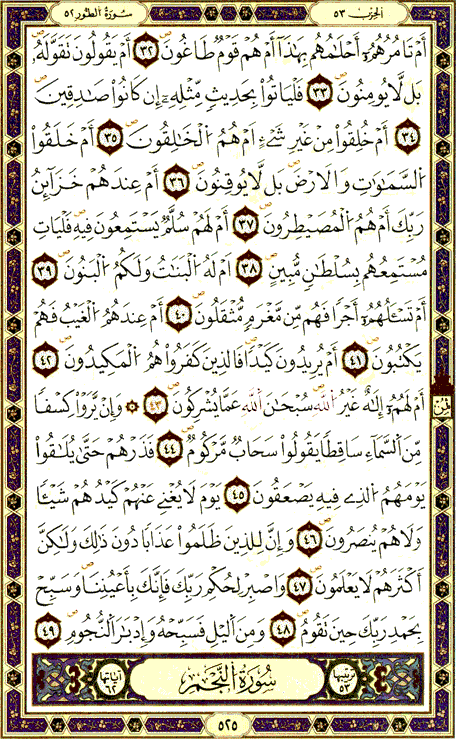 الحزب ٥٣
سورة الطور ٥٢
أم تامرهمۥ أحلامهم بهذا أم هم قوم طاغون ٣٢ أم يقولون تقوله
بل لا يومنون ٣٣ فلياتوا بحديث مثلهۦ إن كانوا صادقين
٣٤ أم خلقوا من غير شےء ام هم الخالقون ٣٥ أم خلقوا
السماوات والارض بل لا يوقنون ٣٦ أم عندهم خزائن
ربك أم هم المصيطرون ٣٧ أم لهم سلم يستمعون فيه فليات
مستمعهم بسلطان مبين ٣٨ ام له البنات ولكم البنون ٣٩
أم تسـٔلهمۥ أجرا فهم من مغرم مثقلون ٤٠ أم عندهم الغيب فهم
يكتبون ٤١ أم يريدون كيدا فالذين كفروا هم المكيدون ٤٢
أم لهمۥ إلاه غير الله سبحان الله عما يشركون ٤٣ وإن يروا كسفا
من السماء ساقطا يقولوا سحاب مركوم ٤٤ فذرهم حتى يلاقوا
يومهم الذے فيه يصعقون ٤٥ يوم لا يغنے عنهم كيدهم شيـٔا
ولا هم ينصرون ٤٦ وإن للذين ظلموا عذابا دون ذالك ولاكن
أكثرهم لا يعلمون ٤٧ واصبر لحكم ربك فإنك بأعيننا وسبح
بحمد ربك حين تقوم ٤٨ ومن اليل فسبحه وإدبار النجوم ٤٩
ثمن
ترتيبها ٥٣
سورة النجم
آياتها ٦٢
٥٢٥